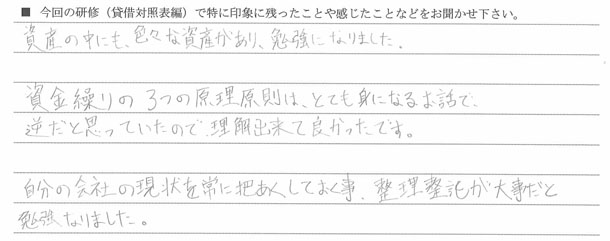 ■ 今回の研修（貸借対照表編）で特に印象に残ったことや感じたことなどをお聞かせ下さい。
資産の中にも、色々な資産があり、勉強になりました。
資金繰りの3つの原理原則は、とても身になるお話で、
逆だと思っていたので、理解出来て良かったです。
自分の会社の現状を常に把あくしておく事、整理整託が大事だと
勉強なりました。